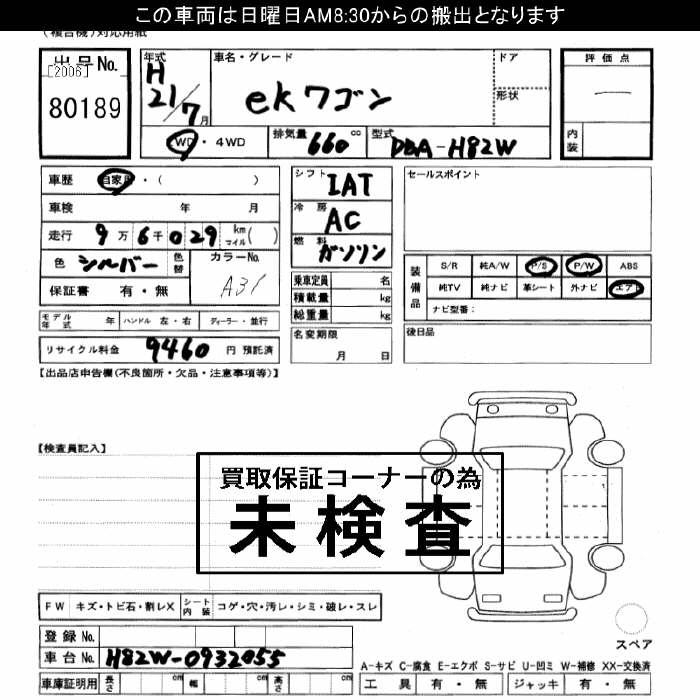 この車両は日曜日AM8:30からの搬出となります
(複合機)対応用紙
出品No.
[2006]
80189
年式
H
21/7月
車名・グレード
ekワゴン
ドア
形状
評価点
—
内装
2WD・4WD
排気量 660 cc
型式 DBA-H82W
車歴 自家用・( )
車検 年 月
走行 9万6千029 km マイル( )
色 シルバー 色替
カラーNo.
A31
保証書 有・無
シフト IAT
冷房 AC
燃料 ガソリン
乗車定員 名
積載量 kg
総重量 kg
セールスポイント
装備品
S/R 純A/W P/S P/W ABS
純TV 純ナビ 革シート 外ナビ エアB
ナビ型番:
モデル年式 年 ハンドル 左・右 ディーラー・並行
リサイクル料金 9460 円 預託済
名変期限
月 日
後日品
【出品店申告欄(不良箇所・欠品・注意事項等)】
【検査員記入】
買取保証コーナーの為
未検査
FW キズ・トビ石・割レX シート内装 コゲ・穴・汚レ・シミ・破レ・スレ
登録No.
車台No. H82W-0932055
車庫証明用 長さ cm 幅 cm 高さ cm
スペア
A-キズ C-腐食 E-エクボ S-サビ U-凹ミ W-補修 XX-交換済
工具 有・無 ジャッキ 有・無